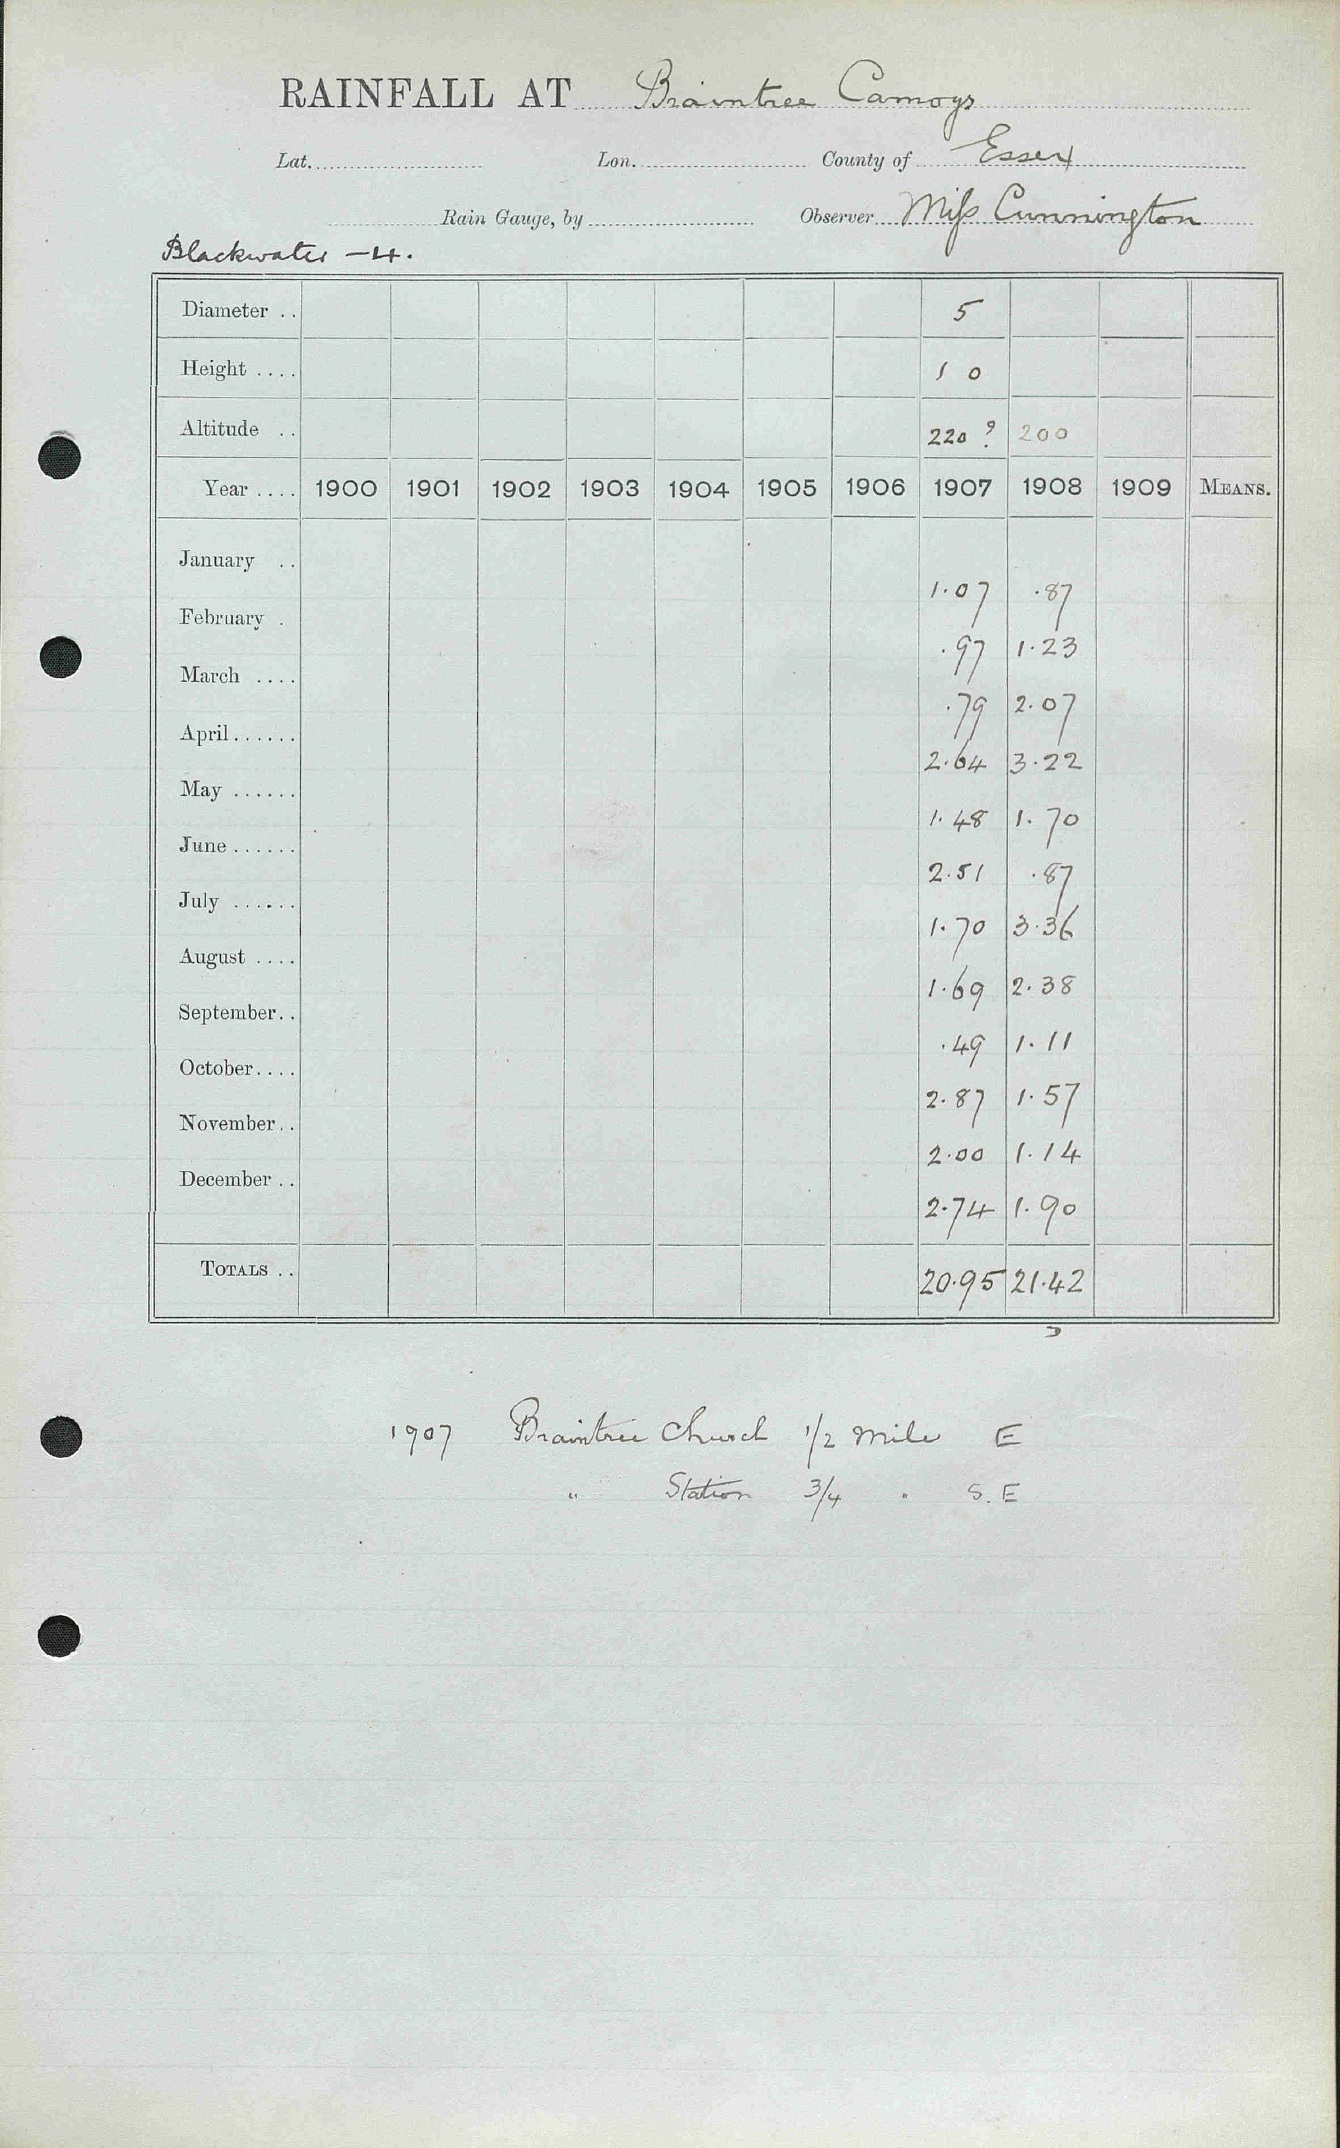 RAINFALL AT Braintree Camoys
Lat. Lon. County of Essex
Rain Gauge, by Observer Miss Cunnington
Blackwater – 4.
Diameter .. 5
Height .... 1 0
Altitude .. 220 ? 200
Year .... 1900 1901 1902 1903 1904 1905 1906 1907 1908 1909 MEANS.
January .. 1.07 .87
February . .97 1.23
March .... .79 2.07
April...... 2.64 3.22
May ...... 1.48 1.70
June ...... 2.51 .87
July ...... 1.70 3.36
August .... 1.69 2.38
September.. .49 1.11
October.... 2.87 1.57
November.. 2.00 1.14
December .. 2.74 1.90
TOTALS .. 20.95 21.42
1907 Braintree Church 1/2 mile E
" Station 3/4 " S.E